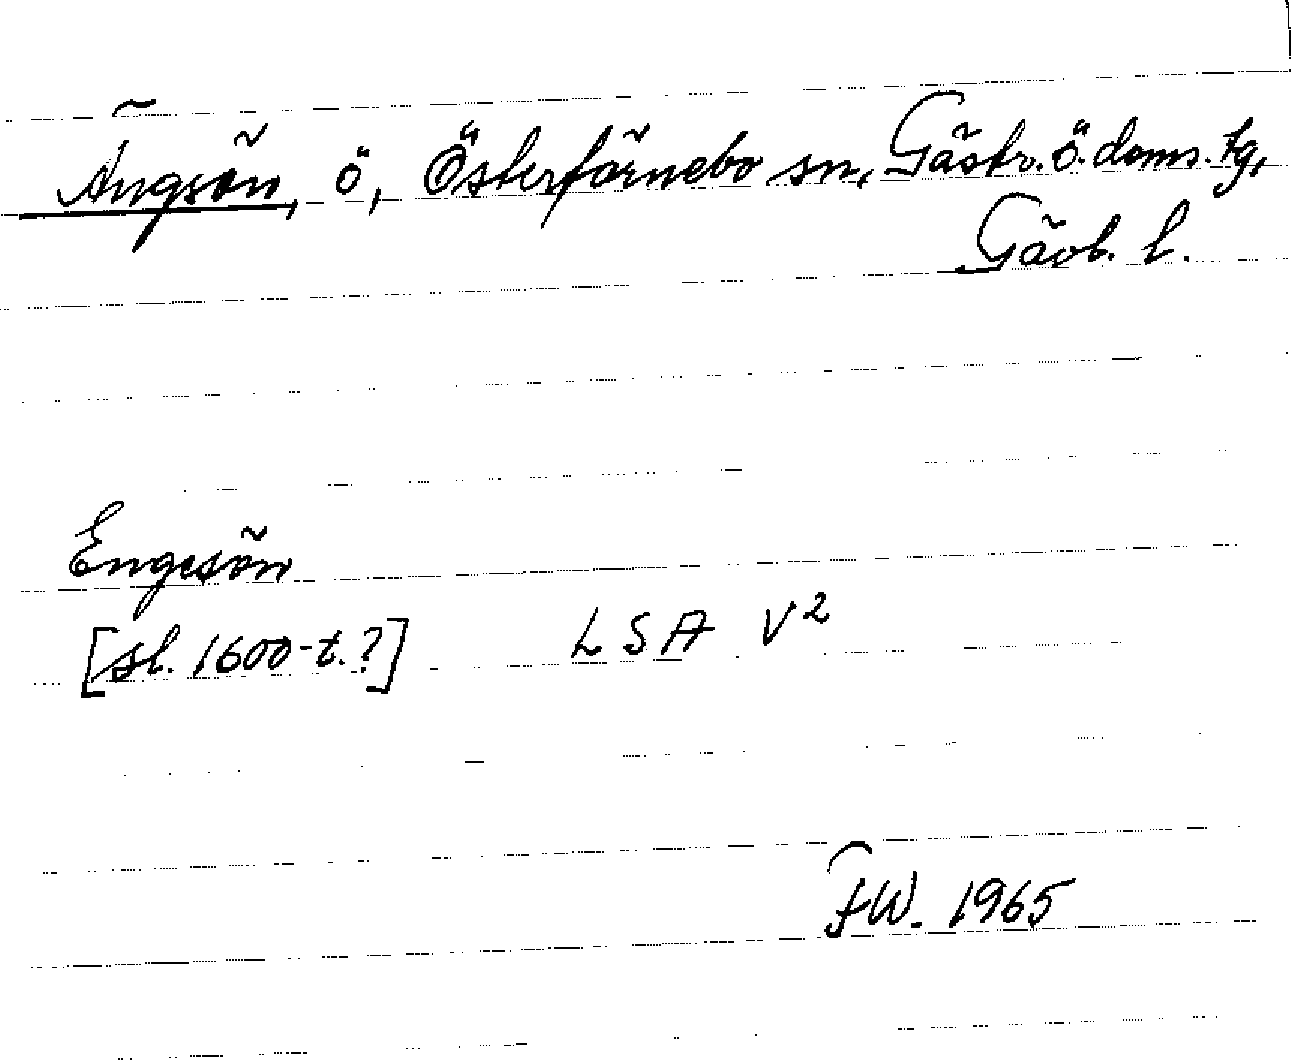 Ängsön, ö, Österfärnebo sn, Gästr. ö. doms. tg,
Gävb. l.
Engesön
[sl. 1600-t.?] LSA V²
FW. 1965